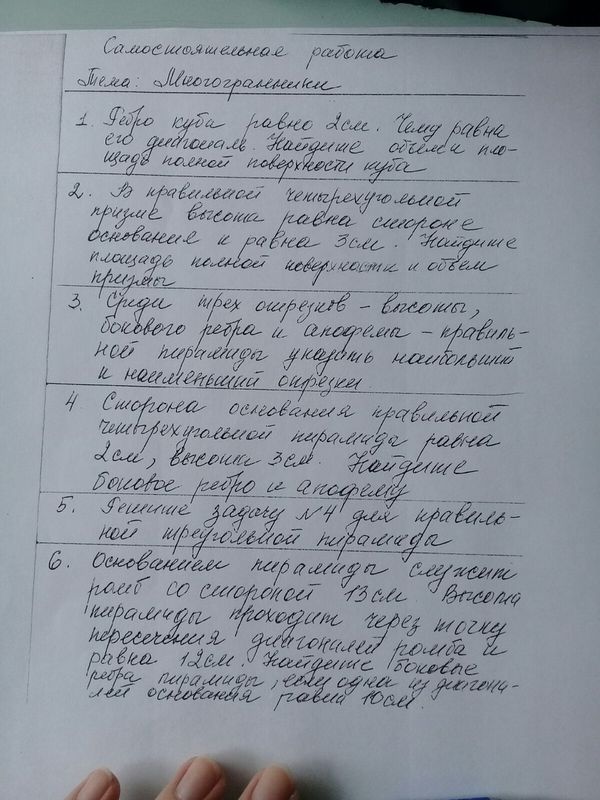 Самостоятельная работа
Тема: Многогранники
1. Ребро куба равно 2см. Чему равна
его диагональ. Найдите объем и пло-
щадь полной поверхности куба
2. В правильной четырехугольной
призме высота равна стороне
основания и равна 3см. Найдите
площадь полной поверхности и объем
призмы
3. Среди трех отрезков - высоты,
бокового ребра и апофемы - правиль-
ной пирамиды указать наибольший
и наименьший отрезки.
4 Сторона основания правильной
четырехугольной пирамида равна
2см, высота 3см. Найдите
боковое ребро и апофему
5. Решите задачу №4 для правиль-
ной треугольной пирамиды
6. Основанием пирамиды служит
ромб со стороной 13см. Высота
пирамиды проходит через точку
пересечения диагоналей ромба и
равна 12см. Найдите боковые
ребра пирамиды, если одна из диагона-
лей основания равна 10см.